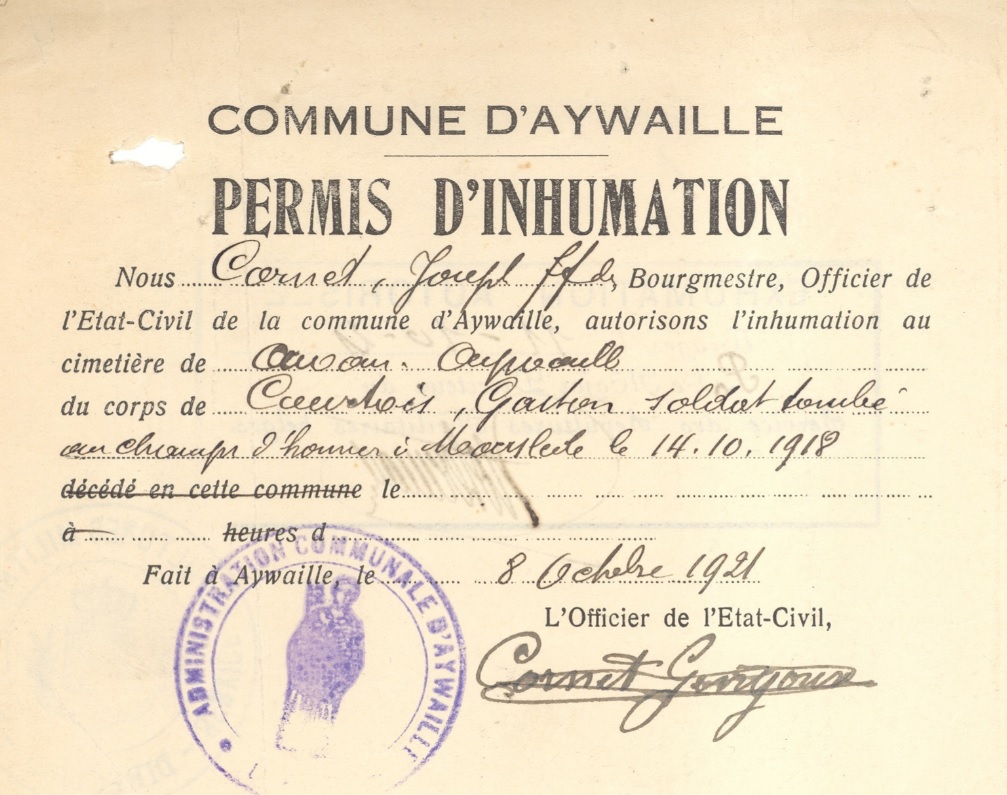 COMMUNE D'AYWAILLE
PERMIS D'INHUMATION
Nous Cornet, Joseph ff de Bourgmestre, Officier de
l'Etat-Civil de la commune d'Aywaille, autorisons l'inhumation au
cimetière de Awan - Aywaille
du corps de Courtois, Gaston soldat tombé
au champs d'honneur à Moorslede le 14.10.1918
décédé en cette commune le
à heures d
Fait à Aywaille, le 8 Octobre 1921
L'Officier de l'Etat-Civil,
Cornet
ADMINISTRATION COMMUNALE D'AYWAILLE